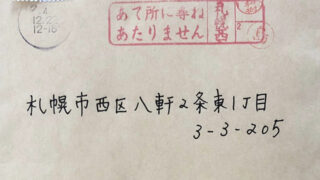 12.22
12-18
あて所に尋ね
あたりません
札幌市西区八軒2条東1丁目
3-3-205